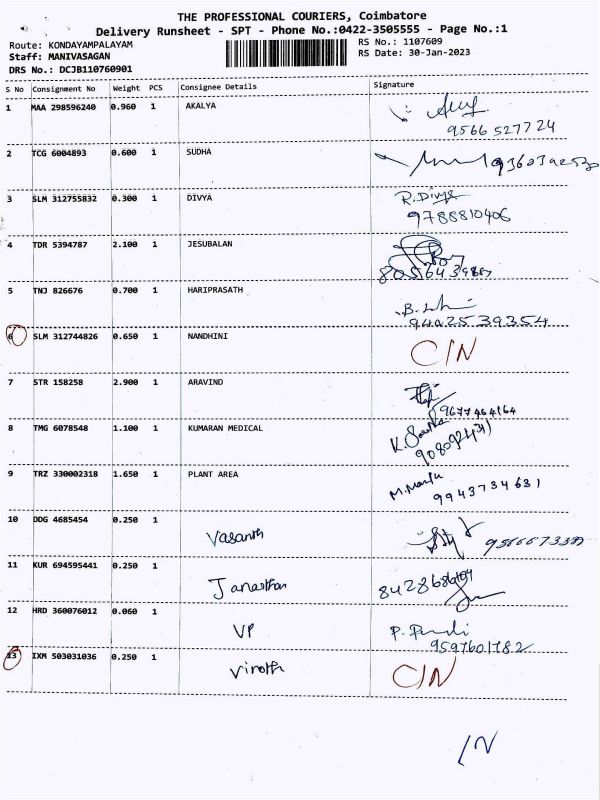 THE PROFESSIONAL COURIERS, Coimbatore
Delivery Runsheet - SPT - Phone No.:0422-3505555 - Page No.:1
Route: KONDAYAMPALAYAM RS No.: 1107609
Staff: MANIVASAGAN RS Date: 30-Jan-2023
DRS No.: DCJB110760901
S No Consignment No Weight PCS Consignee Details Signature
1 MAA 298596240 0.960 1 AKALYA
9566527724
2 TCG 6004893 0.600 1 SUDHA
3 SLM 312755832 0.300 1 DIVYA R.Divya
9788810406
4 TDR 5394787 2.100 1 JESUBALAN
5 TNJ 826676 0.700 1 HARIPRASATH
9442539354
6 SLM 312744826 0.650 1 NANDHINI C/N
7 STR 158258 2.900 1 ARAVIND
9677464164
8 TMG 6078548 1.100 1 KUMARAN MEDICAL
9 TRZ 330002318 1.650 1 PLANT AREA
9943734631
10 DDG 4685454 0.250 1 Vasanth
11 KUR 694595441 0.250 1 Janarthan
12 HRD 360076012 0.060 1 VP
9597601782
13 IXM 503031036 0.250 1 Viroth C/N
/N